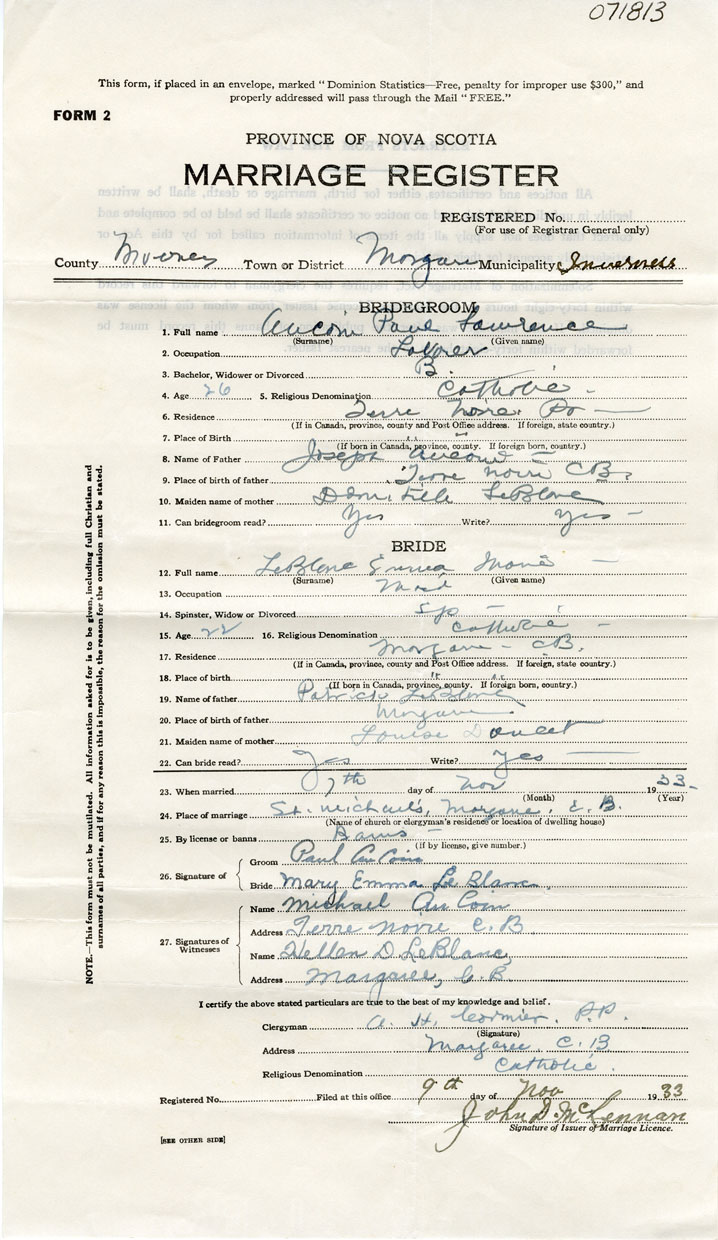 071813
This form, if placed in an envelope, marked "Dominion Statistics—Free, penalty for improper use $300," and
properly addressed will pass through the Mail "FREE."
FORM 2
PROVINCE OF NOVA SCOTIA
MARRIAGE REGISTER
REGISTERED No.
(For use of Registrar General only)
County Town or District Municipality Inverness
BRIDEGROOM
1. Full name Aucoin Paul Lawrence
(Surname) (Given name)
2. Occupation
3. Bachelor, Widower or Divorced B.
4. Age 26 5. Religious Denomination Catholic -
6. Residence Terre Noire. Po
(If in Canada, province, county and Post Office address. If foreign, state country.)
7. Place of Birth " "
(If born in Canada, province, county. If foreign born, country.)
8. Name of Father Joseph Aucoin
9. Place of birth of father Terre Noire CB.
10. Maiden name of mother LeBlanc
11. Can bridegroom read? Yes Write? Yes -
BRIDE
12. Full name LeBlanc Emma Marie
(Surname) (Given name)
13. Occupation Maid
14. Spinster, Widow or Divorced Sp -
15. Age 22 16. Religious Denomination Catholic -
17. Residence - CB.
(If in Canada, province, county and Post Office address. If foreign, state country.)
18. Place of birth " "
(If born in Canada, province, county. If foreign born, country.)
19. Name of father Patrick LeBlanc
20. Place of birth of father
21. Maiden name of mother Louise Doucet
22. Can bride read? Yes Write? Yes
23. When married 7th day of Nov 1933-
(Month) (Year)
24. Place of marriage St. Michael's, C. B.
(Name of church or clergyman's residence or location of dwelling house)
25. By license or banns Banns -
(If by license, give number.)
26. Signature of
Groom Paul AuCoin
Bride Mary Emma Le Blanc
27. Signatures of
Witnesses
Name Michael AuCoin
Address Terre Noire C. B
Name Hellen D LeBlanc
Address Margaree, C. B.
I certify the above stated particulars are true to the best of my knowledge and belief.
Clergyman A. H. Cormier. P.P.
(Signature)
Address Margaree C. B
Religious Denomination Catholic.
Registered No. Filed at this office 9th day of Nov 1933
John D McLennan
Signature of Issuer of Marriage Licence.
[SEE OTHER SIDE]
NOTE.—This form must not be mutilated. All information asked for is to be given, including full Christian and
surnames of all parties, and if for any reason this is impossible, the reason for the omission must be stated.